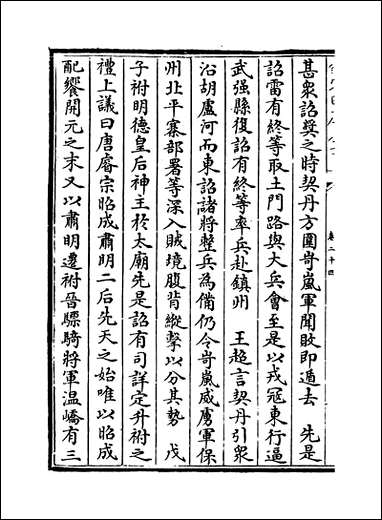 甚衆詔奨之時契丹方圍岢嵐軍聞敗即遁去　先是
詔雷有終等取土門路與大兵會至是以戎冦東行逼
武强縣復詔有終等率兵赴鎮州　王超言契丹引衆
沿胡盧河而東詔諸將整兵為備仍令岢嵐威虜軍保
州北平寨部署等深入賊境腹背縱擊以分其勢　戊
子祔明德皇后神主於太廟先是詔有司詳定升祔之
禮上議曰唐睿宗昭成肅明二后先天之始唯以昭成
配饗開元之末又以肅明遷祔晉驃騎將軍温嶠有三
卷二十四